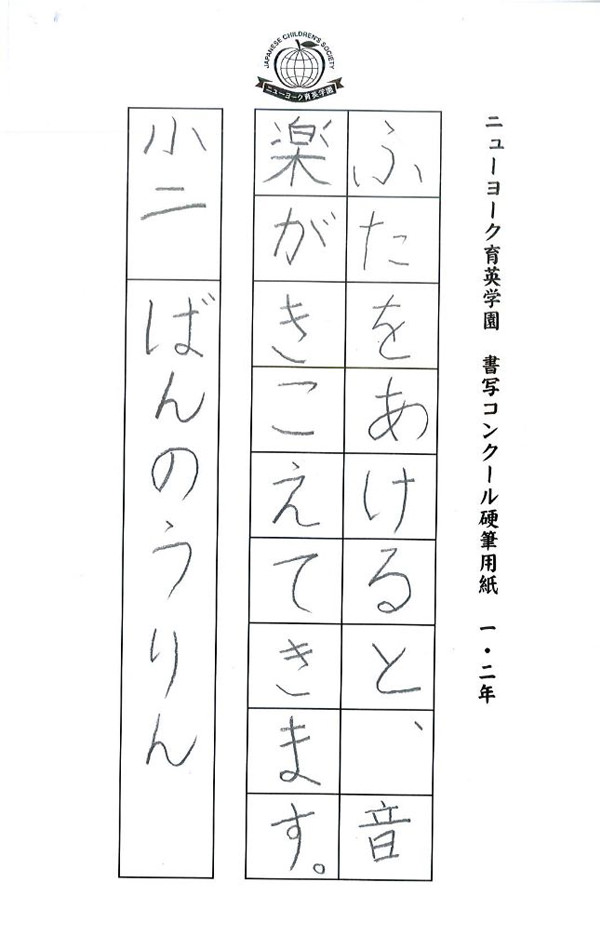 JAPANESE CHILDREN'S SOCIETY
ニューヨーク育英学園
ニューヨーク育英学園 書写コンクール硬筆用紙 一・二年
ふたをあけると、音
楽がきこえてきます。
小二 ばんのうりん